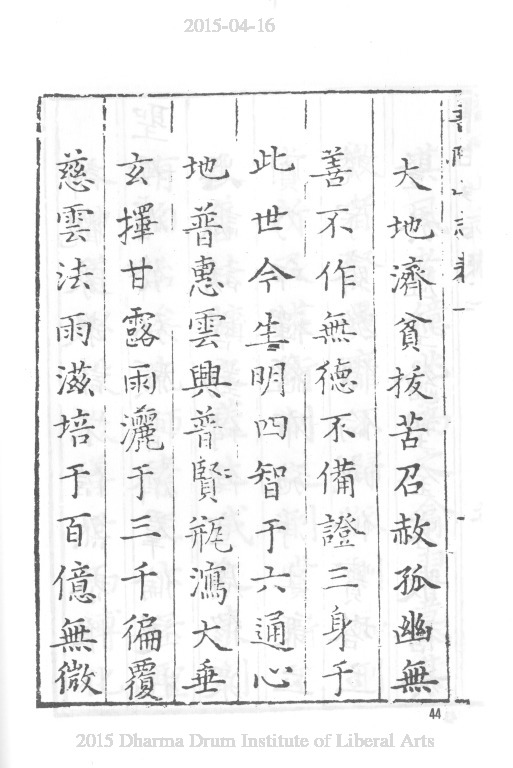 2015-04-16
大地濟貧拔苦召赦孤幽無
善不作無德不備證三身于
此世今生明四智于六通心
地普惠雲興普賢瓶瀉大垂
玄擇甘露雨灑于三千徧覆
慈雲法雨滋培于百億無微
44
2015 Dharma Drum Institute of Liberal Arts